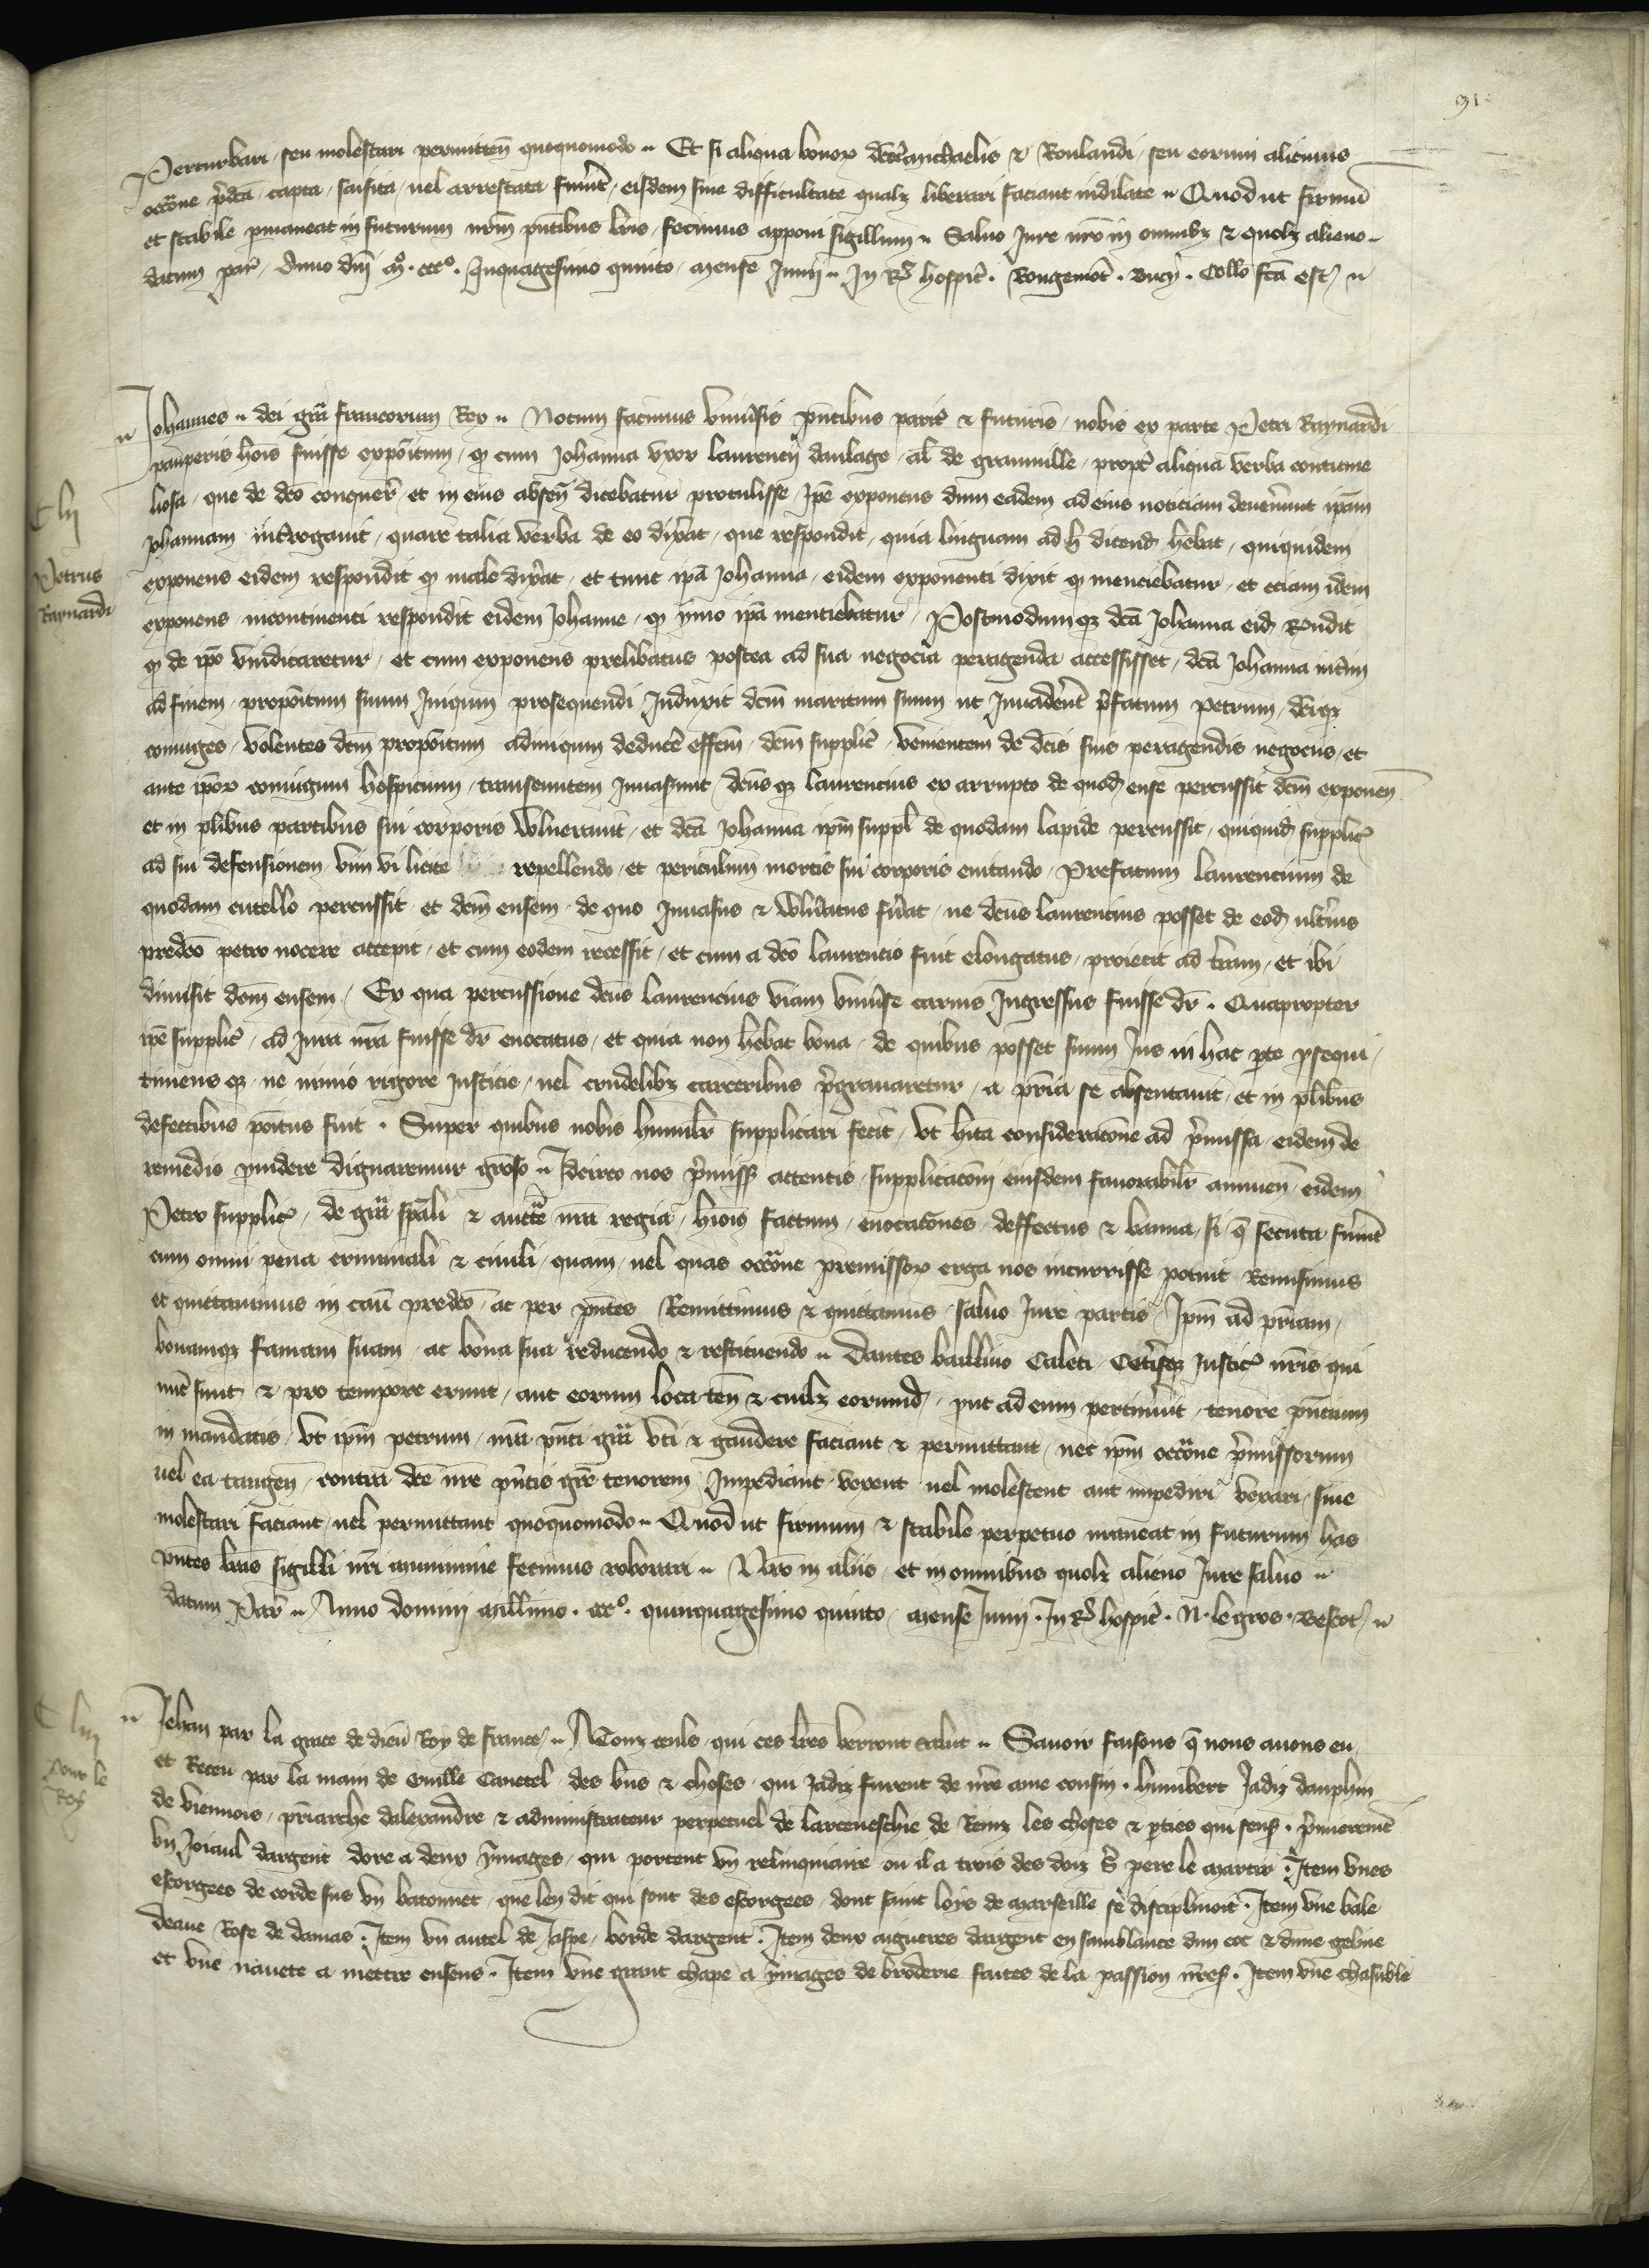 91
Perturbari / seu molestari permitten̄ quoquomodo ̴ Et si aliqua bonoꝝ dc̄oꝝ Michaelis ⁊ Roulandi / seu eorum alicuius
occ̄one p̄dc̄a / capta / saisita / uel arrestata fuer̄t / eisdem sine difficultate qualꝫ liberari faciant indilate ̴ Quod ut firmū
et stabile pmaneat in futurum nr̄m pn̄tibus lr̄is / fecimus apponi sigillum ̴ Saluo Jure nr̄o in omnibꝫ ⁊ quolꝫ alieno ̴
datum par̄ / Anno dn̄i mͦ. cccͦ. Quinquagesimo quinto / mense Junij ̴ In Rꝫ hospic̄ . Rougemōt . Bucy . Coll̄o fc̄a est ̴
Johannes ̴ dei gr̄a francorum Rex ̴ Notum facimus vniu̓sis pn̄tibus parit̓ ⁊ futuris / nobis ex parte Petri Raynardi
pauperis ho̅is fuisse expo̅itum / ꝙ cum Johanna vxor laurencij daulage / al̄ de granuille / propt̓ aliqua verba contume
liosa / que de dc̄o conquer̄ / et in eius absen̄ dicebatur protulisse / Ip̄e exponens dum eadem ad eius noticiam deuen̓unt ip̄am
Johannam int̓rogauit / quare talia verba de eo dix̓at / que respondit / quia linguam ad h̄ dicend̄ heb̄at / quiquidem
exponens eidem respondit ꝙ male dix̓at / et tunc ip̄a Johanna / eidem exponenti dixit ꝙ menciebatur / et eciam idem
exponens / incontinenti respondit eidem Johanne / ꝙ ymo ip̄a mentiebatur / Postmodumqꝫ dc̄a Johanna eid̄ R̄ondit
ꝙ de ip̄o vindicaretur / et cum exponens prelibatus postea ad sua negocia peragenda accessisset / dc̄a Johanna int̓im
ad finem / propo̅itum suum Iniqum prosequendi Induxit dc̄m maritum suum ut Inuader̄t p̄fatum Petrum / dc̄iqꝫ
coniuges / volentes dc̄m propo̅itum adimqum deduce̓ eff̄cm̄ / dc̄m supplic̄ / venientem de dc̄is suis peragendis negociis / et
ante ip̄oꝝ coniugum hospicium / transeuntem Inuaserunt / dc̄usqꝫ laurencius ex arrupto de quod̄ ense percussit dc̄m exponen̄
et in pl̄ibus partibus sui corporis vulnerauit / et dc̄a Johanna ip̄m suppl̄ de quodam lapide percussit / quiquid̄ supplic̄
ad sui defensionem vim vi licite repellendo / et periculum mortis sui corporis euitando / Prefatum laurencium de
quodam cutello percussit / et dc̄m ensem / de quo Inuasus ⁊ vuln̓atus fu̓at / ne dc̄us laurencius posset de eod̄ ult̓ius
predc̄o petro nocere accepit / et cum eodem recessit / et cum a dc̄o laurencio fuit elongatus / proiecit ad t̓ram / et ibi
dimisit dc̄m ensem / Ex qua percussione dc̄us laurencius viam vniu̓se carnis Ingressus fuisse dr̄ . Quapropter
ip̄e supplic̄ / ad Jura nr̄a fuisse dr̄ euocatus / et quia non heb̄at bona / de quibus posset suum Jus in hac pte psequi /
timens qꝫ / ne nimio rigore Justicie / uel crudelibꝫ carceribus p̄grauaretur / a pr̄ia se absentauit / et in pl̄ibus
defectibus po̅itus fuit . Super quibus nobis humilr̄ supplicari fecit / vt h̄ita consideracōne ad p̄missa / eidem de
remedio puidere dignaremur gr̄oso ̴ Idcirco nos p̄miss̄ attentis / supplicac̄om̄ eiusdem fauorabilr̄ annuen̄ / eidem
Petro supplic̄ / de gr̄a spāli ⁊ auctt̄e nr̄a regia / h̄ioi̅s factum / euocac̄ones / deffectus ⁊ banna / si q̄ secuta fuer̄t
cum omni pena criminali ⁊ ciuili / quam / uel quas occ̄one premissoꝝ erga nos incurrisse potuit Remisimus
et quittauimus in casū predc̄o / ac per pn̄tes Remittimus ⁊ quittamus / saluo Jure partis / Ip̄m ad pr̄iam /
bonamqꝫ famam suam / ac bona sua reducendo ⁊ restituendo ̴ Dantes bailliuo Caleti / cet̓isqꝫ Justic̄ nr̄is qui
nūc sunt ⁊ pro tempore erunt / aut eorum loca ten̄ ⁊ cuilꝫ eorumd̄ / put ad eum pertinu̓it / tenore pn̄cium
in mandatis / vt ip̄m petrum / nr̄a pn̄ti gr̄a vti ⁊ gaudere faciant ⁊ permittant / nec ip̄m occ̄one p̄missorum
uel ea tangen̄ / contra dc̄e nr̄e pn̄tis gr̄e tenorem Impediant / vexent uel molestent aut impediri / vexari / siue
molestari faciant / uel permittant quoquomodo ̴ Quod ut firmum ⁊ stabile perpetuo maneat in futurum has
pn̄tes lr̄as sigilli nr̄i munimine fecimus roborari ̴ Nr̄o in aliis / et in omnibus quolꝫ alieno Jure saluo ̴
datum Par̄ ̴ Anno domini millimo . cccͦ. quinquagesimo quinto / mense Junij . In Rꝫ hospic̄ . N. le gros . Bescot ̴
C lij
Petrus
Raynardi
Jehan par la grace de dieu Roy de france / ̴ A Touz ceuls / qui ces lr̄es verront salut ̴ Sauoir faisons q̄ nous auons eu /
et Receu par la main de Guille Cauetel / des bn̄s ⁊ choses / qui Jadiz furent de nr̄e ame cousin . humbert Jadiz dauphin
de viennois / pr̄iarche dalexandre ⁊ administrateur perpetuel de larceueschie de Reinz les choses ⁊ pties qui sens̄ . p̄mieremēt
vn Joiaul dargent dore a deux ymages / qui portent vn reliquiaire ou il a trois des doiz s̄ pere le martir . Item vnes
escorgees de corde sus vn batonnet / que len dit qui sont des escorgees / dont saint loys de Marseille se disciplinoit . Item vne bale
deaue Rose de damas . Item vn autel de Jaspe / borde dargent . Item deux aiguieres dargent en samblance dun coc ⁊ dune geline
et vne nauete a mettre ensens . Item vne grant chape a ymages de broderie faites de la passion nr̄es̄ . Item vne chasuble
C liij
Pour le
Roy